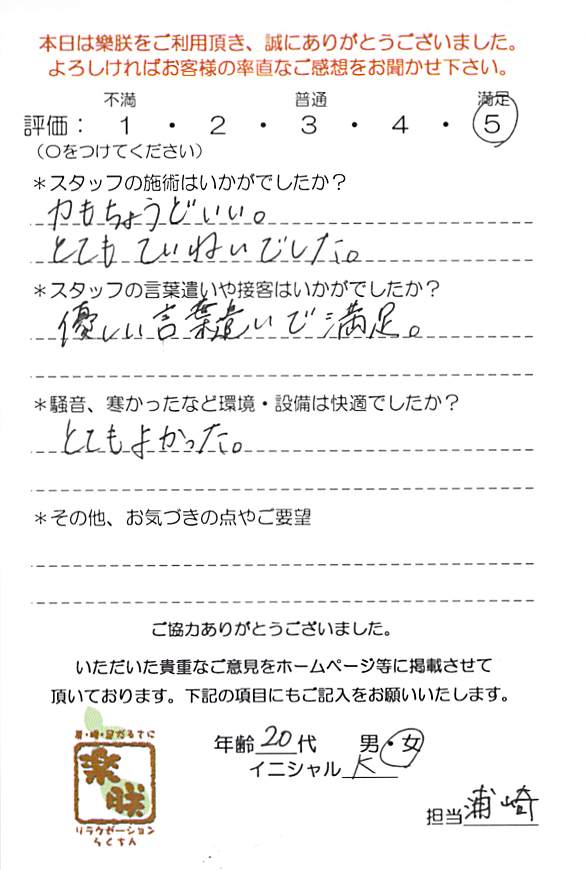 本日は樂朕をご利用頂き、誠にありがとうございました。
よろしければお客様の率直なご感想をお聞かせ下さい。
不満 普通 満足
評価： 1 ・ 2 ・ 3 ・ 4 ・ 5
（○をつけてください）
＊スタッフの施術はいかがでしたか？
力もちょうどいい。
とても ていねいでした。
＊スタッフの言葉遣いや接客はいかがでしたか？
優しい言葉遣いで満足。
＊騒音、寒かったなど環境・設備は快適でしたか？
とてもよかった。
＊その他、お気づきの点やご要望
ご協力ありがとうございました。
いただいた貴重なご意見をホームページ等に掲載させて
頂いております。下記の項目にもご記入をお願いいたします。
年齢 20 代 男・女
イニシャル K
担当 浦崎
樂
朕
リラクゼーション
らくちん